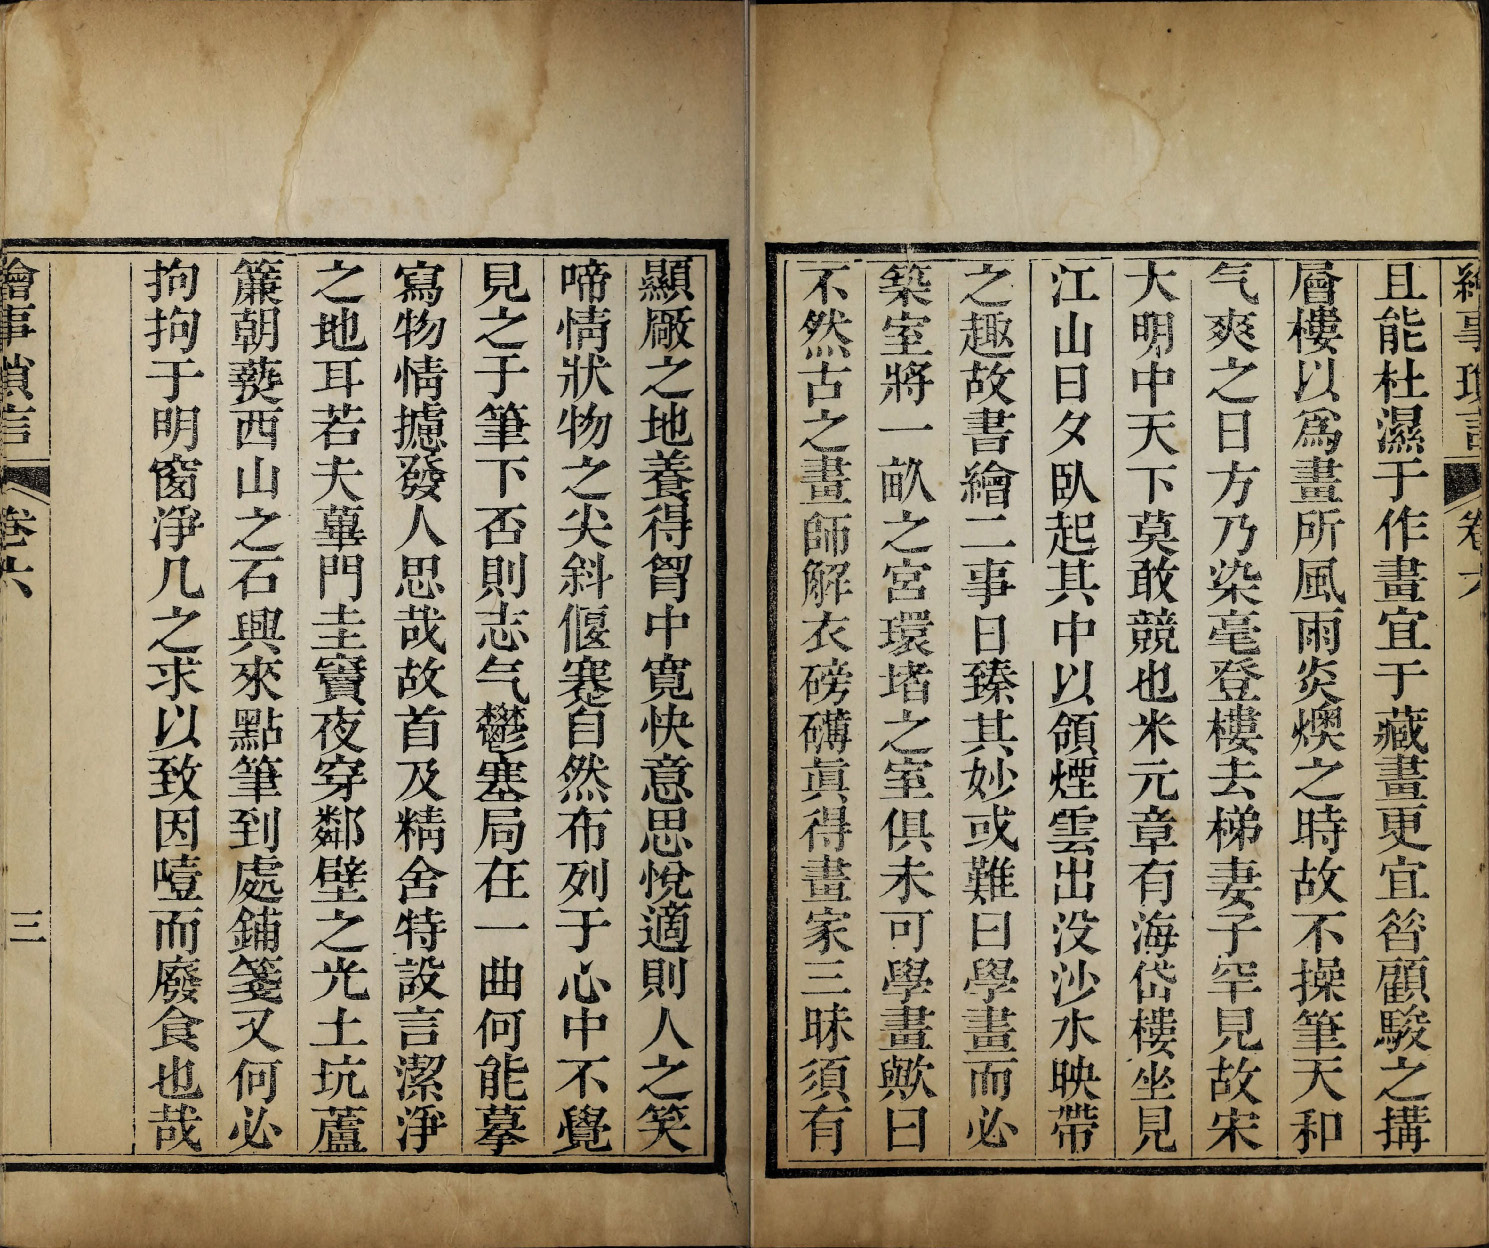 繪事瑣言 卷六
且能杜濕于作畫宜于藏畫更宜昝顧駿之搆
層樓以爲畫所風雨炎燠之時故不操筆天和
气爽之日方乃染毫登樓去梯妻子罕見故宋
大明中天下莫敢競也米元章有海岱樓坐見
江山日夕臥起其中以領煙雲出没沙水映帶
之趣故書繪二事日臻其妙或難曰學畫而必
築室將一畝之宮環堵之室俱未可學畫歟曰
不然古之畫師解衣磅礴眞得畫家三昧須有
顯厰之地養得胷中寬快意思悅適則人之笑
啼情狀物之尖斜偃蹇自然布列于心中不覺
見之于筆下否則志气鬱塞局在一曲何能摹
寫物情攄發人思哉故首及精舍特設言潔淨
之地耳若夫蓽門圭竇夜穿鄰壁之光土坑蘆
簾朝爇西山之石興來點筆到處鋪箋又何必
拘拘于明窗淨几之求以致因噎而廢食也哉
繪事瑣言 卷六 三